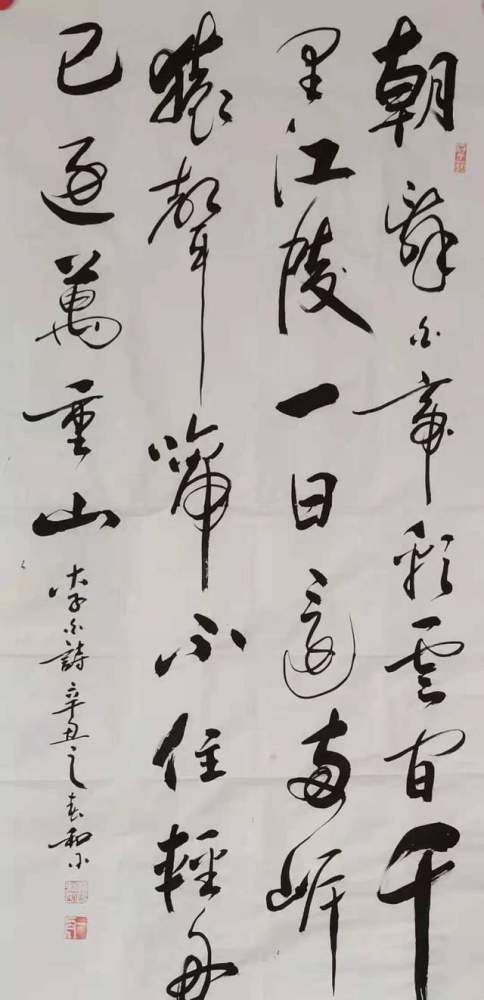 朝辭白帝彩雲間千
里江陵一日還兩岸
猿聲啼不住輕舟
已過萬重山
李白詩辛丑之春